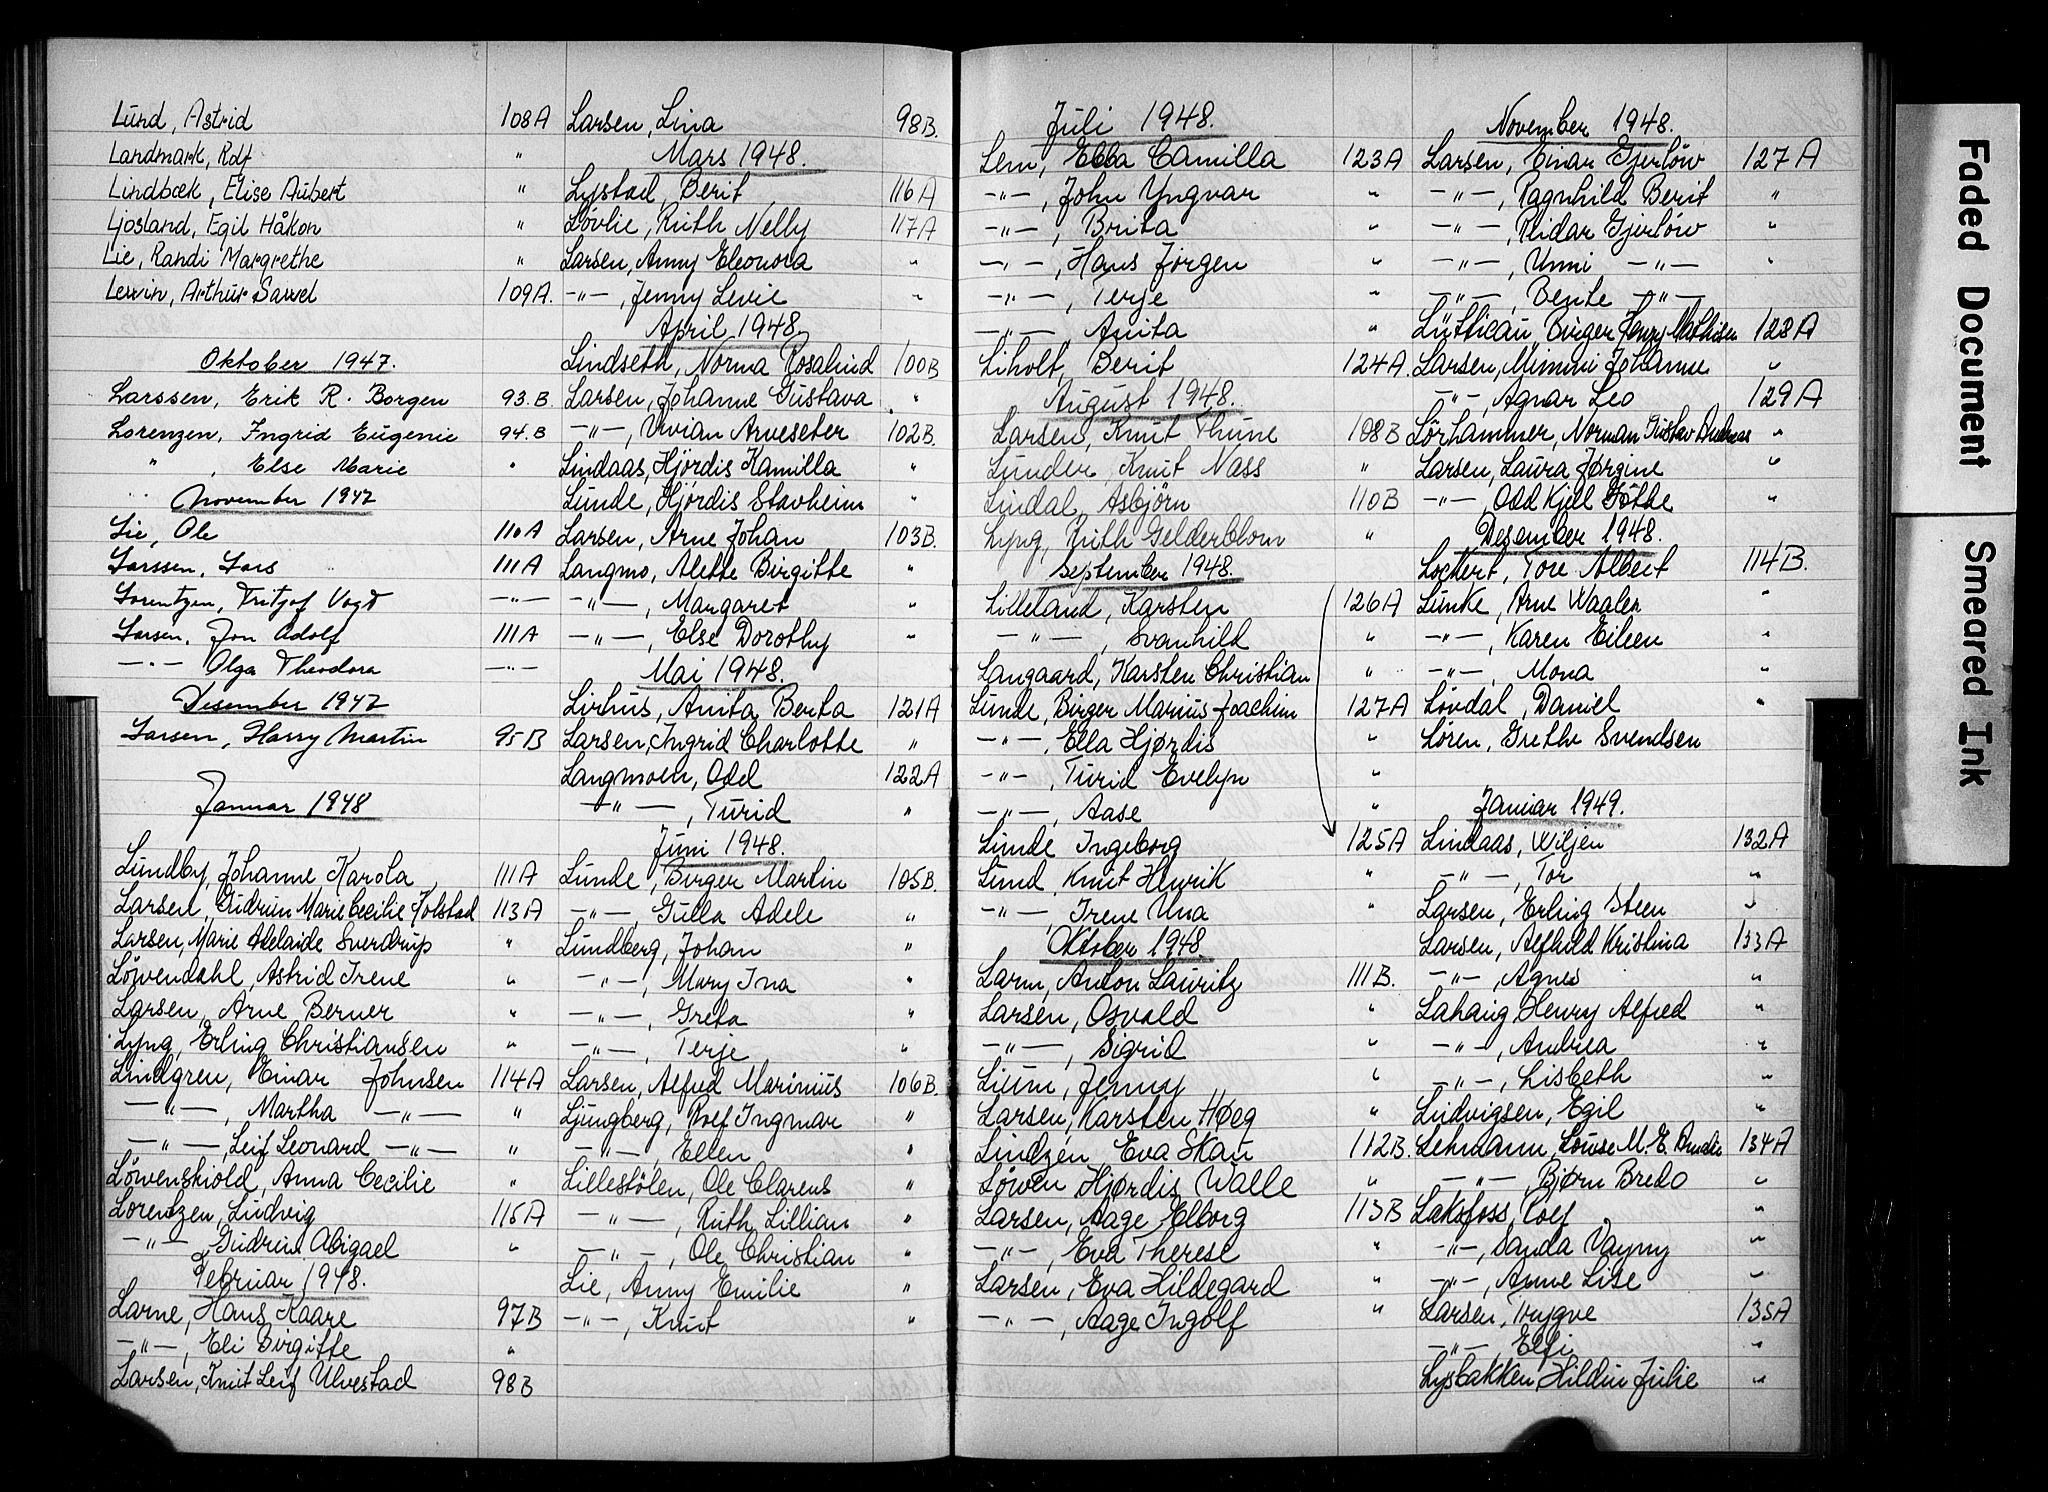 Lund, Astrid 108A
Landmark, Rolf "
Lindbæk, Elise Aubert "
Ljosland, Egil Håkon "
Lie, Randi Margrethe "
Lewin, Arthur Sawel 109A.
Oktober 1947.
Larssen, Erik R. Borgen 93.B.
Lorenzen, Ingrid Eugenie 94.B
" , Else Marie "
November 1947
Lie, Ole 110A
Larssen, Lars 111A
Lorentzen, Fritjof Vogt —"—
Larsen, Jon Adolf 111A
—"— Olga Theodora —"—
Desember 1947
Larsen, Harry Martin 95B
Januar 1948
Lundby, Johanne Karola 111A
Larsen, Gudrun Marie Cecilie Jolstad 113A
Larsen, Marie Adelaide Sverdrup "
Löwendahl, Astrid Irene "
Larsen, Arne Berner "
Lyng, Erling Christiansen "
Lindgren, Einar Johnsen 114A
—"—, Martha —"— "
—"—, Leif Leonard —"— "
Löwenskiold, Anna Cecilie "
Lorentzen, Ludvig 115A
—"— Gudrun Abigael "
Februar 1948.
Larne, Hans Kaare 97B
—"—, Eli Birgitte "
Larsen, Knut Leif Ulvestad 98B
Larsen, Lina 98B.
Mars 1948.
Lystad, Berit 116A
Lövlie, Ruth Nelly 117A
Larsen, Anny Eleonora "
—"—, Jenny Levie "
April 1948.
Lindseth, Norma Rosalind 100B
Larsen, Johanne Gustava "
—"—, Vivian Arveseter 102B.
Lindaas, Hjördis Kamilla "
Lunde, Hjördis Stavheim "
Larsen, Arne Johan 103B.
Langmo, Alette Birgitte "
—"—, Margaret "
—"—, Else Dorothy "
Mai 1948.
Lirhus, Anita Berta 121A
Larsen, Ingrid Charlotte "
Langmoen, Odd 122A
—"—, Turid "
Juni 1948.
Lunde, Birger Martin 105B.
—"—, Gulla Adele "
Lundberg, Johan "
—"—, Mary Ina "
—"—, Greta "
—"—, Terje "
Larsen, Alfred Marinius 106B.
Ljungberg, Rolf Ingmar "
—"—, Ellen "
Lillestölen, Ole Clarens "
—"—, Ruth Lillian "
—"—, Ole Christian "
Lie, Anny Emilie "
—"—, Knut "
Juli 1948.
Lem, Ebba Camilla 123A
—"—, John Yngvar "
—"—, Brita "
—"—, Hans Jörgen "
—"—, Terje "
—"—, Anita "
Liholt, Berit 124A.
August 1948.
Larsen, Knut Thune 108B
Lunder, Knut Nass "
Lindal, Asbjörn 110B
Lyng, Ruth Gelderblom "
September 1948.
Lilleland, Karsten 126A
—"—, Svanhild "
Langaard, Karsten Christian "
Lunde, Birger Marius Joachim 127A
—"—, Ella Hjørdis "
—"—, Turid Evelyn "
—"—, Aase "
Lunde Ingeborg 125A
Lund, Knut Henrik "
—"—, Irene Una "
Oktober 1948.
Larm, Anton Lauritz 111B.
Larsen, Osvald "
—"—, Sigrid "
Lium, Jenny "
Larsen, Karsten Høeg "
Lindzén, Eva Skau 112B.
Löwen Hjørdis Walle "
Larsen, Aage Elborg 113B
—"—, Eva Therese "
Larsen, Eva Hildegard "
—"—, Aage Ingolf "
November 1948.
Larsen, Einar Gjerlöw 127A
—"—, Ragnhild Berit "
—"—, Reidar Gjerlöw "
—"—, Unni —"— "
—"—, Bente —"—
Lütticau, Birger Henry Mathisen 128A
Larsen, Mimmi Johanne "
—"—, Agnar Leo 129A
Lörhammer, Norman Gustav Andreas "
Larsen, Laura Jørgine "
—"—, Odd Kjell Götte "
Desember 1948.
Lockert, Tore Albert 114B.
Lunke, Arne Waaler "
—"—, Karen Eileen "
—"—, Mona "
Lövdal, Daniel "
Løren, Grethe Svendsen
Januar 1949.
Lindaas, Wiljen 132A
—"—, Tor "
Larsen, Erling Steen "
Larsen, Alfhild Kristina 133A
—"—, Agnes "
Lahaug Henry Alfred "
—"—, Andrea "
—"—, Lisbeth "
Ludvigsen, Egil "
Lehmann, Louise M. E. 134A
—"—, Bjørn Bredo "
Laksfoss, Rolf "
—"—, Sanda Vayny "
—"—, Anne Lise "
Larsen, Trygve 135A
—"—, Elfi "
Lysbakken, Hildur Julie "
Faded Document
Smeared Ink